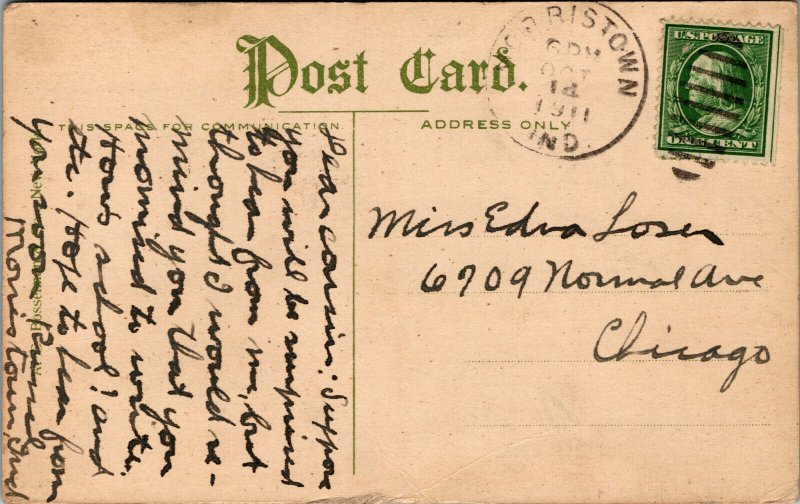 Post Card.
THIS SPACE FOR COMMUNICATION
ADDRESS ONLY
MORRISTOWN
6 PM
OCT
14
1911
IND.
U.S. POSTAGE
ONE CENT
Miss Edna Loser
6709 Normal Ave
Chicago
Dear cousin: Suppose
you will be surprised
to hear from me, but
thought I would re-
mind you that you
promised to write.
How's school? and
etc. Hope to hear from
you soon
Morristown, Ind